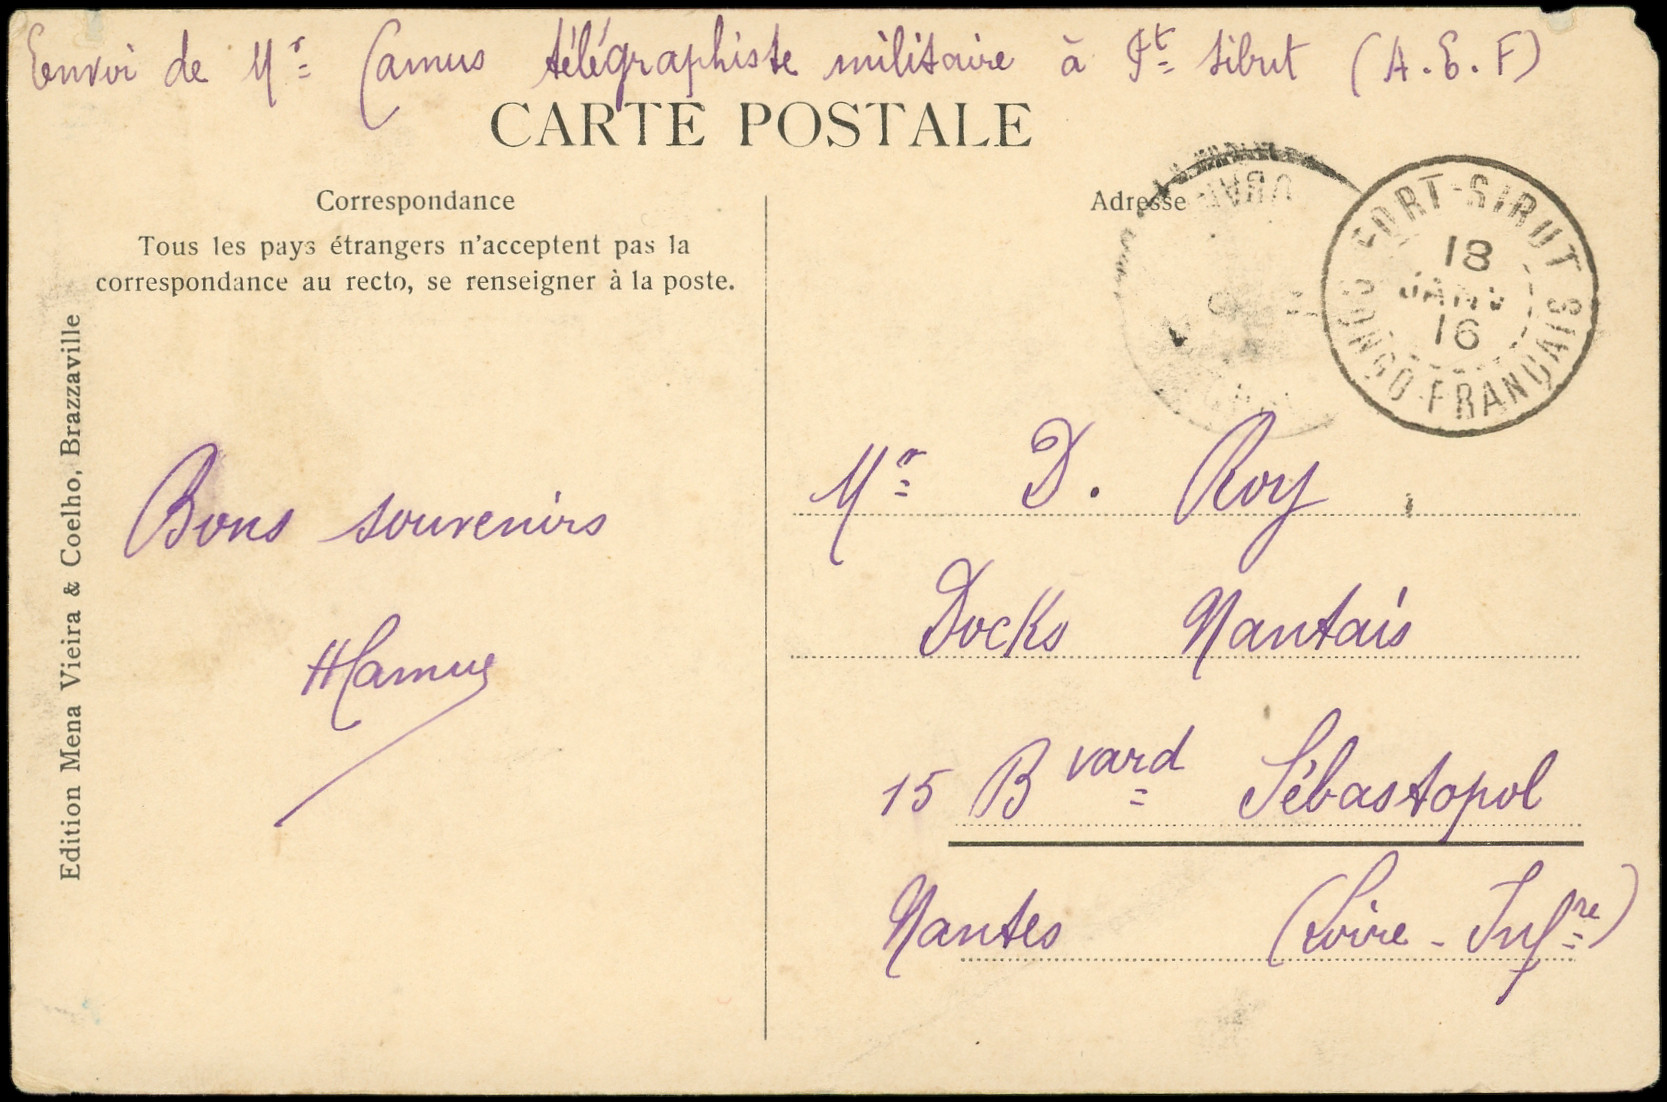 Envoi de Mr Camus télégraphiste militaire à Ft Sibut (A.E.F)
CARTE POSTALE
Correspondance
Tous les pays étrangers n'acceptent pas la
correspondance au recto, se renseigner à la poste.
Edition Mena Vieira & Coelho, Brazzaville
Bons souvenirs
HCamus
Adresse
FORT-SIBUT
18
JANV
16
CONGO FRANÇAIS
Mr D. Roy
Docks Nantais
15 Bvard Sébastopol
Nantes (Loire-Infre)